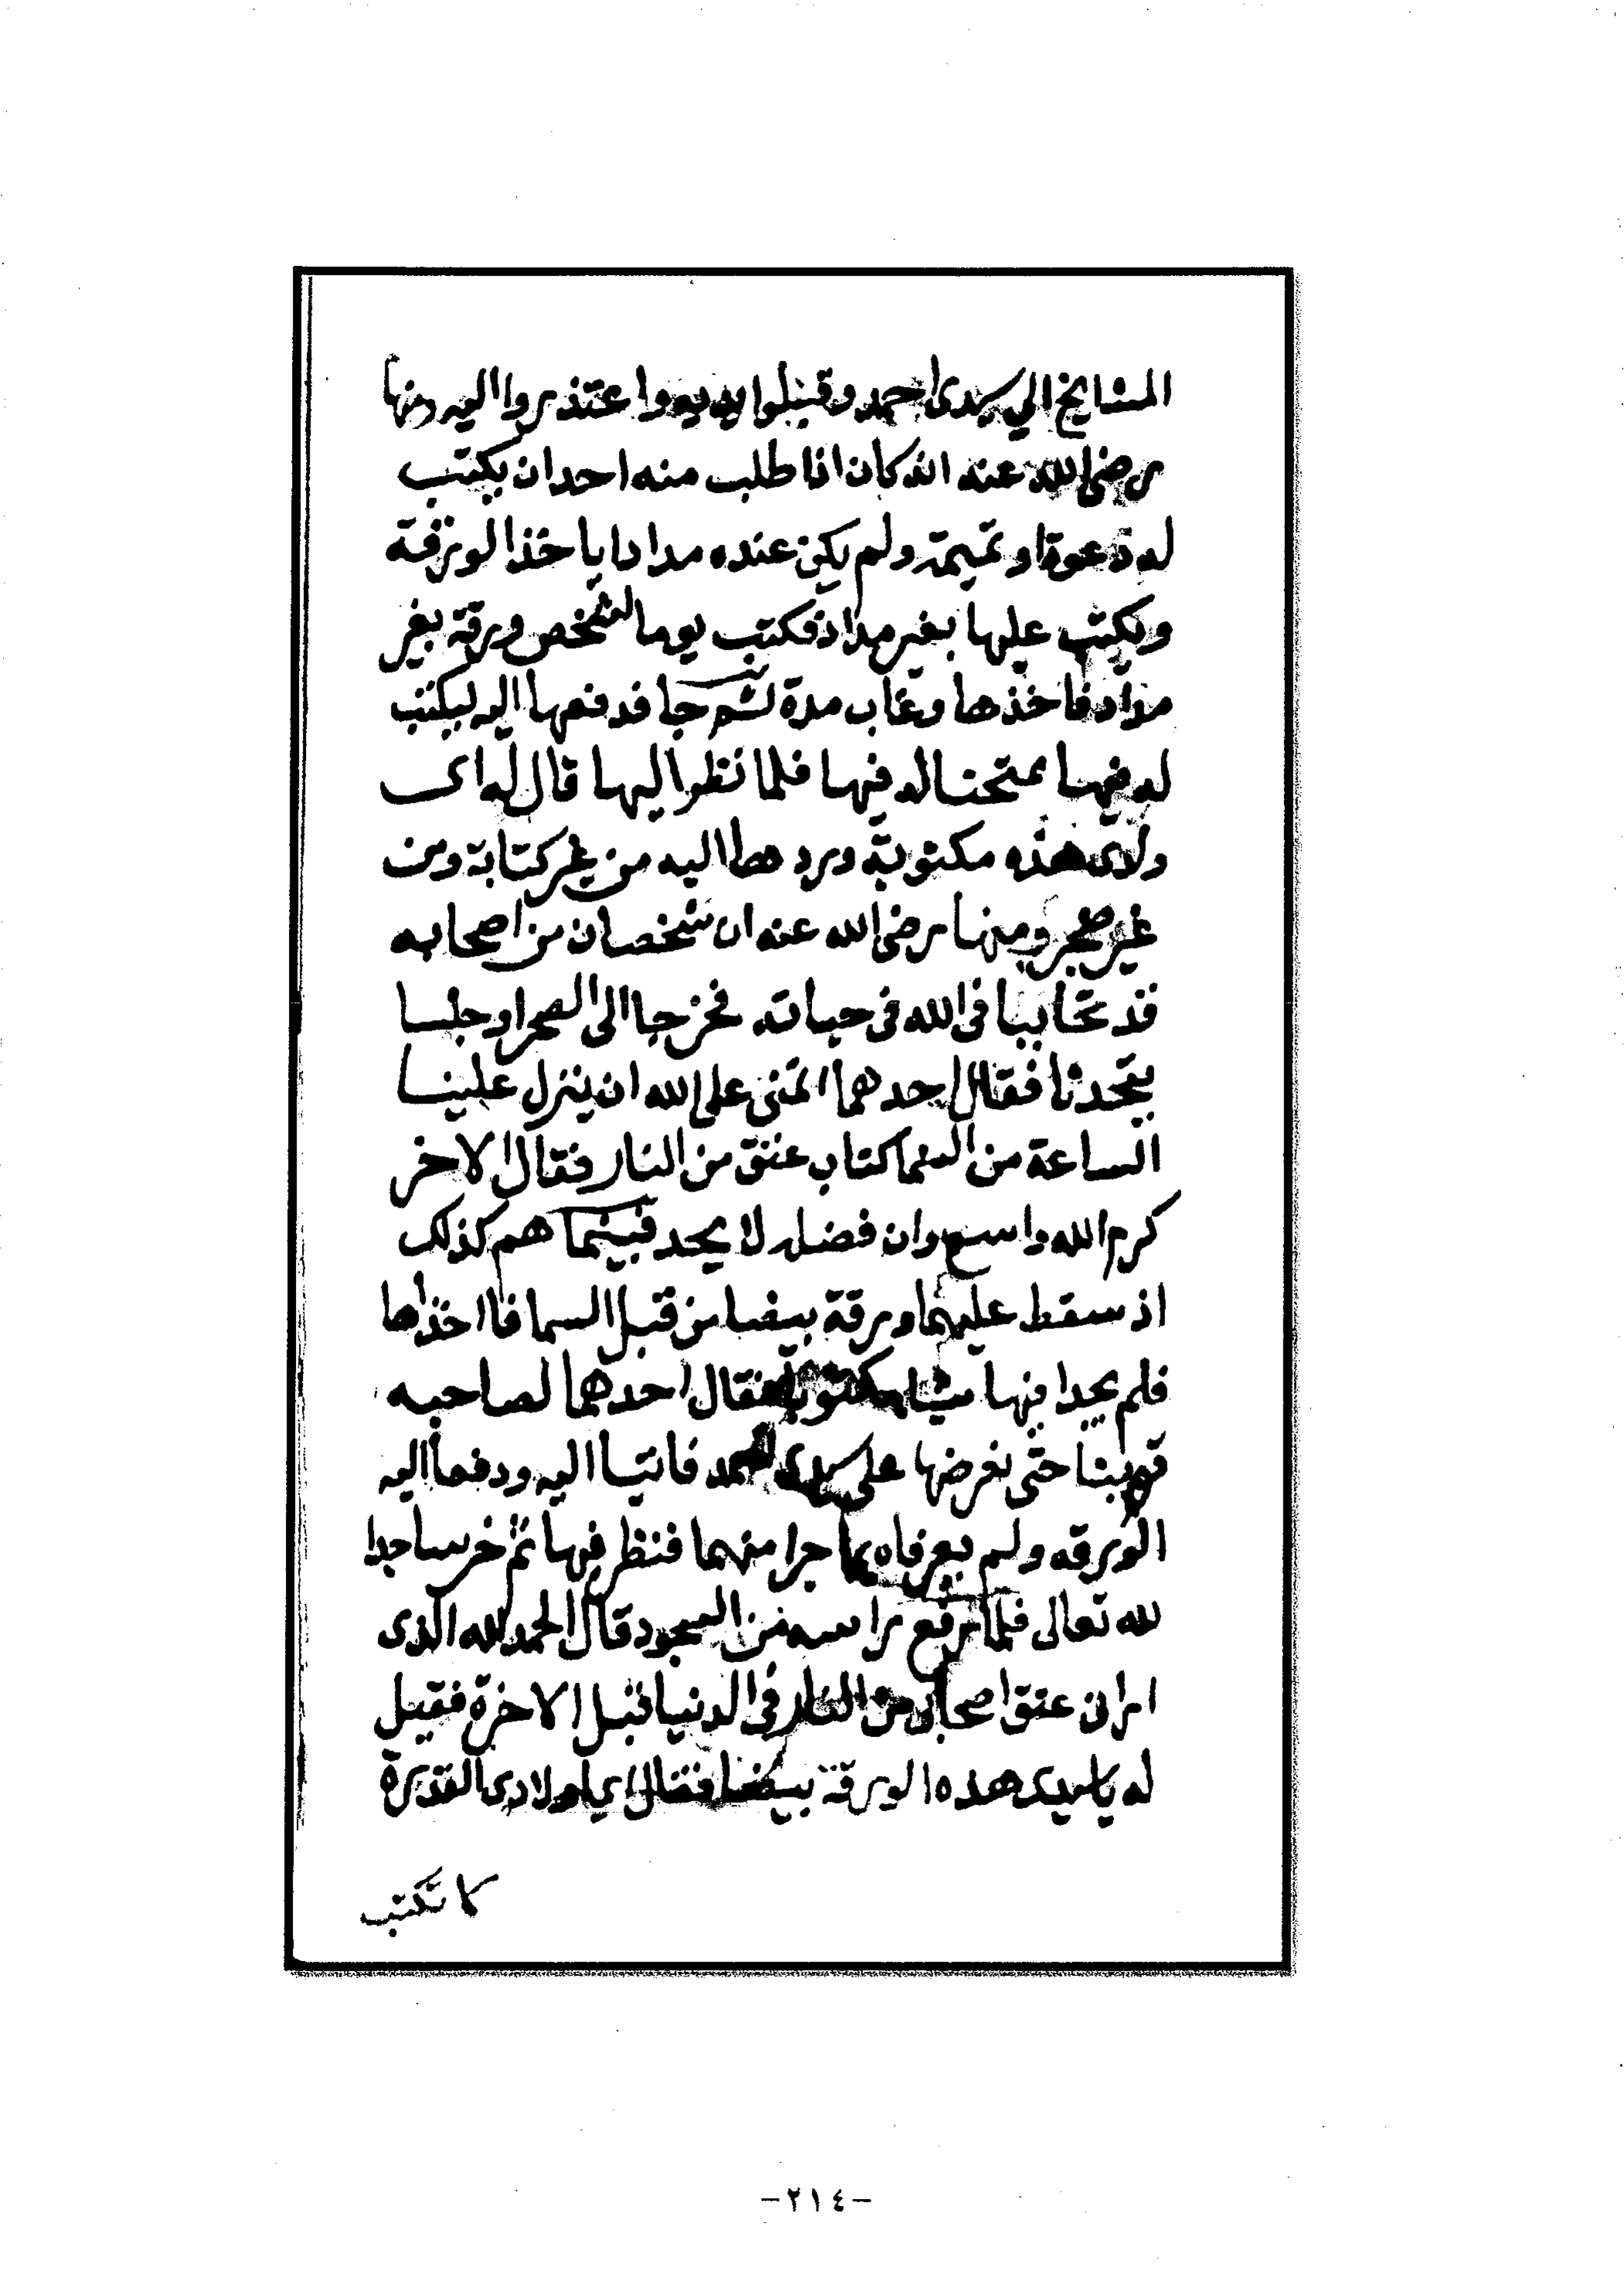 المشايخ الي سيدى احمد وقبلوا يديه واعتذروا اليه ومنها
رضى الله عنه انه كان اذا طلب منه احد ان يكتب
له دعوة او تميمة ولم يكن عنده مدادا ياخذ الورقة
ويكتب عليها بغير مداد فكتب يوما لشخص ورقة بغير
مداد فاخذها وغاب مدة ثم جا فدفعها اليه ليكتب
له فيها ممتحنا له فيها فلما نظر اليها قال له اى
ولدى هذه مكتوبة وردها اليه من غير كتابة ومن
غير ضجر ومنها رضى الله عنه ان شخصان من اصحابه
قد تحاببا فى الله فى حياته فخرجا الى الصحرا وجلسا
يتحدثا فقال احدهما اتمنى على الله ان ينزل علينا
الساعة من السما كتاب عتق من النار فقال الاخر
كرم الله واسع وان فضله لا يحد فبينما هم كذلك
اذ سقط عليهما ورقة بيضا من قبل السما فااخذاها
فلم يجدا فيها شيا مكتوبا فقال احدهما لصاحبه
قم بنا حتى نعرضها على سيدى احمد فاتيا اليه ودفعا اليه
الورقه ولم يعرفاه بما جرا منهما فنظر فيها ثم خر ساجدا
لله تعالى فلما رفع راسه من السجود قال الحمد لله الذى
ارانى عتق اصحابى من النار فى الدنيا قبل الاخرة فقيل
له يا سيدى هذه الورقة بيضا فقال اى اولادى القدرة
لا تكتب
-٢١٤-